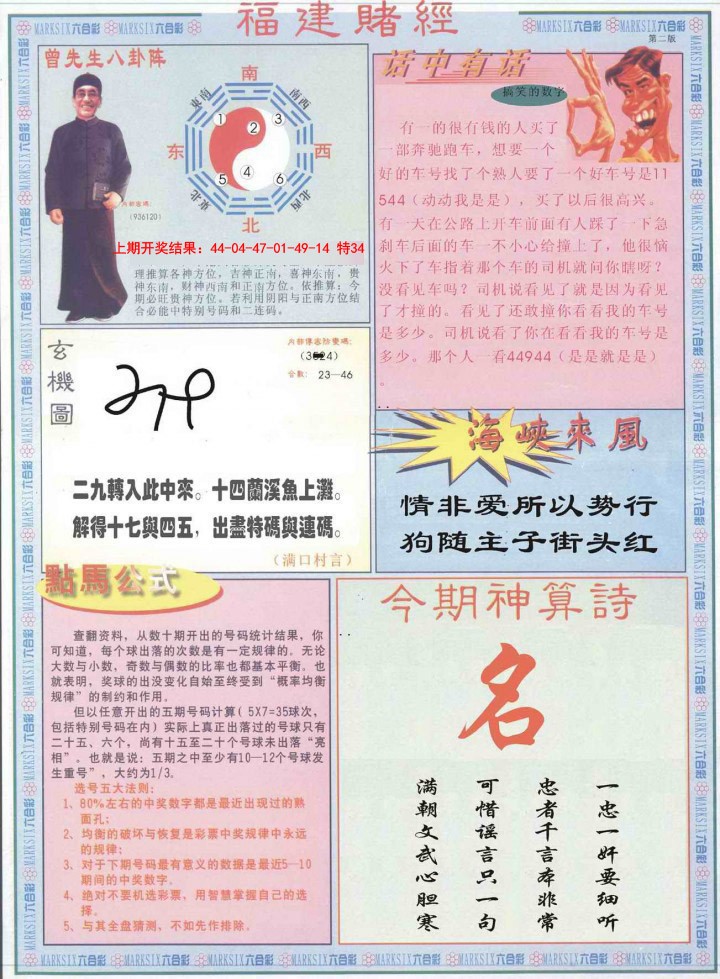 福建賭經
第二版
MARKSIX六合彩
曾先生八卦阵
南
東南
南西
东
西
東北
北西
北
①
②
③
④
⑤
⑥
(936120)
上期开奖结果：44-04-47-01-49-14 特34
理推算各神方位，吉神正南，喜神东南，贵
神东南，财神西南和正南方位。依推算：今
期必旺贵神方位。若利用阴阳与正南方位结
合必能中特别号码和二连码。
话中有话
搞笑的数字
有一的很有钱的人买了
一部奔驰跑车，想要一个
好的车号找了个熟人要了一个好车号是11
544（动动我是是），买了以后很高兴。
有一天在公路上开车前面有人踩了一下急
刹车后面的车一不小心给撞上了，他很恼
火下了车指着那个车的司机就问你瞎呀？
没看见车吗？司机说看见了就是因为看见
了才撞的。看见了还敢撞你看看我的车号
是多少。司机说看了你在看看我的车号是
多少。那个人一看44944（是是就是是）
。
玄機圖
内部傳密防變碼：
合數：23—46
二九轉入此中來。十四蘭溪魚上灘。
解得十七與四五，出盡特碼與連碼。
（满口村言）
海峽來風
情非爱所以势行
狗随主子街头红
點馬公式
查翻资料，从数十期开出的号码统计结果，你
可知道，每个球出落的次数是有一定规律的。无论
大数与小数，奇数与偶数的比率也都基本平衡。也
就表明，奖球的出没变化自始至终受到“概率均衡
规律”的制约和作用。
但以任意开出的五期号码计算（5X7=35球次，
包括特别号码在内）实际上真正出落过的号球只有
二十五、六个，尚有十五至二十个号球未出落“亮
相”。也就是说：五期之中至少有10—12个号球发
生重号”，大约为1/3。
选号五大法则：
1、80%左右的中奖数字都是最近出现过的熟
面孔；
2、均衡的破坏与恢复是彩票中奖规律中永远
的规律；
3、对于下期号码最有意义的数据是最近5—10
期间的中奖数字。
4、绝对不要机选彩票，用智慧掌握自己的选
择。
5、与其全盘猜测，不如先作排除。
今期神算詩
名
一忠一奸要细听
忠者千言本非常
可惜谣言只一句
满朝文武心胆寒